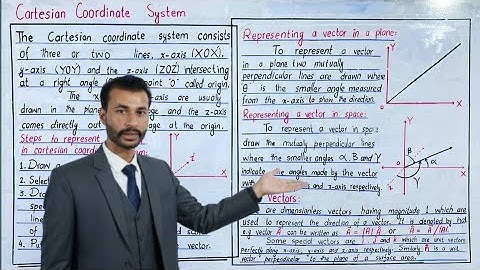 Cartesian Coordinate System
The Cartesian coordinate system consists
of three or two lines, x-axis (XOX'),
y-axis (YOY') and the z-axis (ZOZ') intersecting
at a right angle point 'o' called origin.
The x are usually
drawn in the plane and the z-axis
comes directly out page at the origin.
Steps to represent
in cartesian coordin
1. Draw
2. Selec
3. Dr
spe
line
of
4. Pu vector.
i
Representing a vector in a plane:
To represent a vector
in a plane two mutually
perpendicular lines are drawn where
'θ' is the smaller angle measured
from the x-axis to show the direction.
Y
X
Representing a vector in space:
To represent a vector in space
draw the mutually perpendicular lines
where the smaller angles α, B and Y
indicate the angles made by the vector
with and z-axis respectively.
Y
B
α
X
Vectors:
are dimensionless vectors having magnitude 1 which are
used to represent the direction of a vector. It is denoted by hat
e.g vector A can be written as A = |A| Â or Â = A/|A|
Some special vectors are i, j and k which are unit vectors
x-axis, y-axis and z-axis respectively. Similarly n is a unit
vector perpendicular to the plane of a surface area.